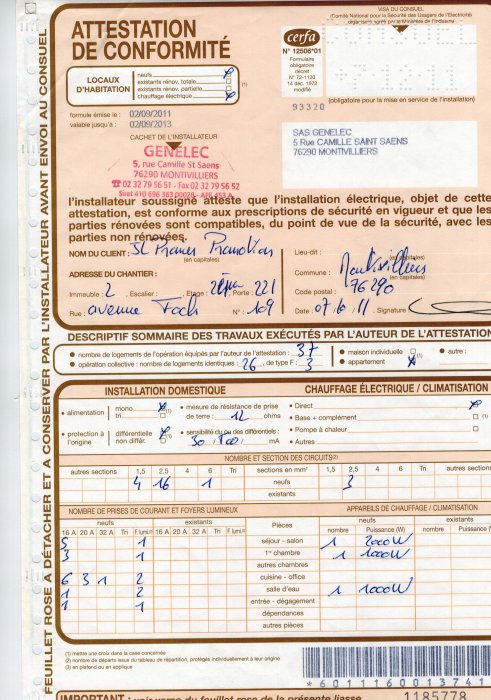 VISA DU CONSUEL
(Comité National pour la Sécurité des Usagers de l'Électricité)
ATTESTATION
DE CONFORMITÉ
cerfa
N° 12506*01
Formulaire
obligatoire
décret
N° 72-1120
14 déc. 1972
modifié
LOCAUX
D'HABITATION
neufs
existants rénov. totale
existants rénov. partielle
chauffage électrique
(1)
93320
(obligatoire pour la mise en service de l'installation)
formule émise le : 02/09/2011
valable jusqu'à : 02/09/2013
CACHET DE L'INSTALLATEUR
GENELEC
5, rue Camille St Saens
76290 MONTIVILLIERS
☎ 02 32 79 56 51 - Fax 02 32 79 56 52
SAS GENELEC
5 Rue CAMILLE SAINT SAENS
76290 MONTIVILLIERS
l'installateur soussigné atteste que l'installation électrique, objet de cette
attestation, est conforme aux prescriptions de sécurité en vigueur et que les
parties rénovées sont compatibles, du point de vue de la sécurité, avec les
parties non rénovées.
NOM DU CLIENT : Promotion
(en capitales)
Lieu-dit :
(en capitales)
ADRESSE DU CHANTIER :
Commune : Montivilliers
(en capitales)
Code postal : 76290
Immeuble : 2 , Escalier : , Etage : , Porte : 221
Rue : avenue Foch N° : 109
Date : 07.6.11 , Signature
DESCRIPTIF SOMMAIRE DES TRAVAUX EXÉCUTÉS PAR L'AUTEUR DE L'ATTESTATION
• nombre de logements de l'opération équipés par l'auteur de l'attestation : 37
• opération collective : nombre de logements identiques : 26 , de type F : 3
• maison individuelle
• appartement
• autre :
INSTALLATION DOMESTIQUE
• alimentation mono (1)
tri
• mesure de résistance de prise
de terre : 12 ohms
• protection à
l'origine
différentielle (1)
non différ.
• sensibilité du ou des différentiels :
mA
CHAUFFAGE ÉLECTRIQUE / CLIMATISATION
• Direct
• Base + complément (1)
• Pompe à chaleur
• Autres
NOMBRE ET SECTION DES CIRCUITS(2)
autres sections 1,5 2,5 4 6 Tri sections en mm² 1,5 2,5 4 6 Tri autres sections
4 16 1 neufs 3
existants
NOMBRE DE PRISES DE COURANT ET FOYERS LUMINEUX
APPAREILS DE CHAUFFAGE / CLIMATISATION
neufs existants Pièces neufs existants
16 A 20 A 32 A Tri F.lumi.(3) 16 A 20 A 32 A Tri F.lumi.(3) nombre Puissance (W) nombre Puissance (W)
5 1 séjour - salon 1 2000W
3 1 1er chambre 1 1000W
autres chambres
6 3 1 2 cuisine - office
1 2 salle d'eau 1 1000W
1 1 entrée - dégagement
dépendances
autres pièces
(1) mettre une croix dans la case concernée
(2) nombre de départs issus du tableau de répartition, protégés individuellement à leur origine
(3) en plafond ou en applique
*601116001374
1185778
IMPORTANT : voir verso du feuillet rose de la présente liasse
FEUILLET ROSE A DÉTACHER ET A CONSERVER PAR L'INSTALLATEUR AVANT ENVOI AU CONSUEL